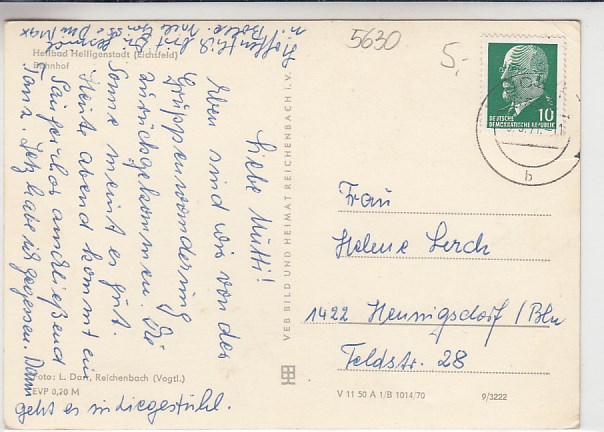 5630
5,-
Heilbad Heiligenstadt (Eichsfeld)
Bahnhof
Liebe Mutti!
Eben sind wir von der
Gruppenwanderung
zurückgekommen. Die
Sonne meint es gut.
Heute abend kommt ein
Sängerchor anschließend
Tanz. Jetzt habe ich gegessen. Dann
geht es in Liegestühl.
Hoffentlich
Foto: L. Darr, Reichenbach (Vogtl.)
EVP 0,20 M
VEB BILD UND HEIMAT REICHENBACH i. V.
10
DEUTSCHE
DEMOKRATISCHE REPUBLIK
b
Frau
Helene Lerch
1422 Hennigsdorf / Bln
Feldstr. 28
V 11 50 A 1/B 1014/70
9/3222